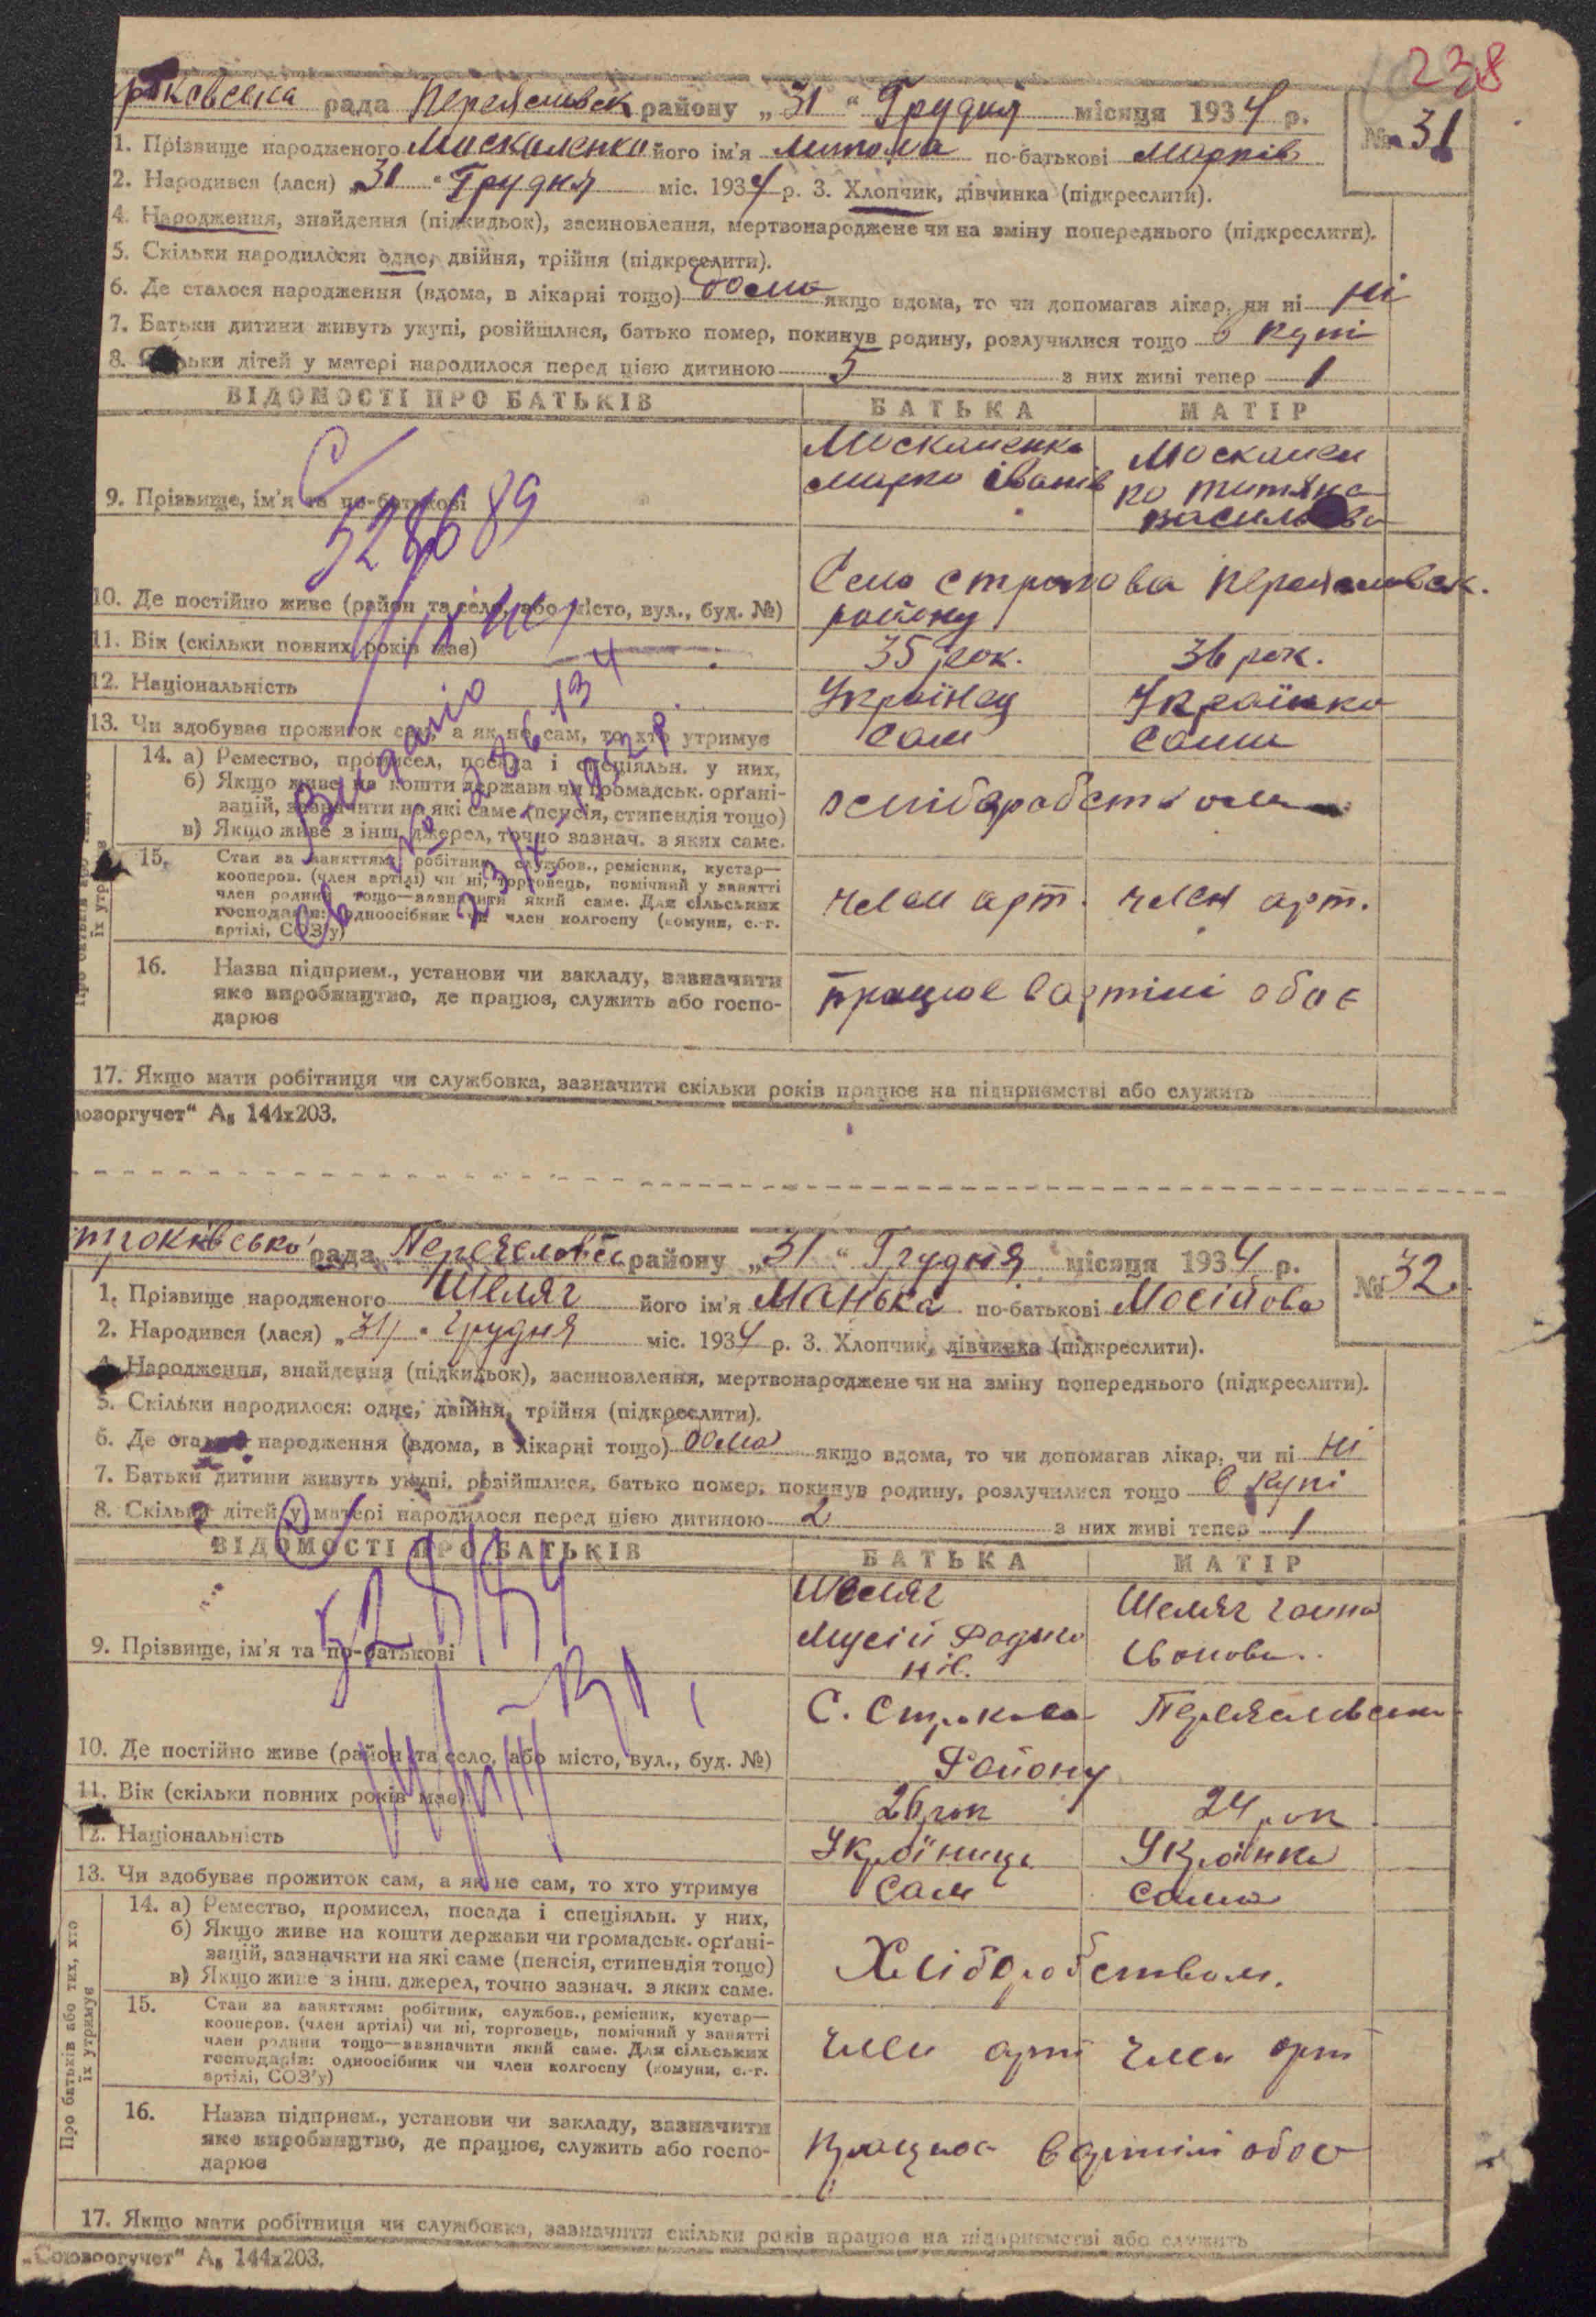 238
роковська рада Переяславськ району „31“ Грудня місяця 1934 р.
№ 31
1. Прізвище народженого Москаленко його ім'я Микола по-батькові Марків
2. Народився (лася) „31“ Грудня міс. 1934 р. 3. Хлопчик, дівчинка (підкреслити).
4. Народження, знайдення (підкидьок), засиновлення, мертвонароджене чи на зміну попереднього (підкреслити).
5. Скільки народилося: одне, двійня, трійня (підкреслити).
6. Де сталося народження (вдома, в лікарні тощо) дома якщо вдома, то чи допомагав лікар, чи ні ні
7. Батьки дитини живуть укупі, розійшлися, батько помер, покинув родину, розлучилися тощо в купі
8. Скільки дітей у матері народилося перед цією дитиною 5 з них живі тепер 1
ВІДОМОСТІ ПРО БАТЬКІВ БАТЬКА МАТІР
9. Прізвище, ім'я та по-батькові
Москаленко Марко Іванів
Москален ко Титяна Васильова
528689
10. Де постійно живе (район та село, або місто, вул., буд. №) Село Строкова Переяславськ. району
11. Вік (скільки повних років має) 35 рок. 36 рок.
12. Національність Українец Українка
13. Чи здобуває прожиток сам, а як не сам, то хто утримує Сам Сама
14. а) Ремество, промисел, посада і спеціяльн. у них,
б) Якщо живе на кошти держави чи громадськ. органі-
зацій, зазначити на які саме (пенсія, стипендія тощо)
в) Якщо живе з інш. джерел, точно зазнач. з яких саме.
Видано
15. Стан за заняттям: робітник, службов., ремісник, кустар—
кооперов. (член артілі) чи ні, торговець, помічний у занятті
член родини тощо—зазначити який саме. Для сільських
господарів: одноосібник чи член колгоспу (комуни, с.-г.
артілі, СОЗ'у)
член арт. член арт.
16. Назва підприєм., установи чи закладу, зазначити
яке виробництво, де працює, служить або госпо-
дарює
працює в артілі обоє
17. Якщо мати робітниця чи службовка, зазначити скільки років працює на підприємстві або служить
юзоргучет“ А₅ 144х203.
троківсько рада Переяславсь району „31“ Грудня місяця 1934 р.
№ 32
1. Прізвище народженого Шеляг його ім'я Манька по-батькові Мосійова
2. Народився (лася) „31“ Грудня міс. 1934 р. 3. Хлопчик, дівчинка (підкреслити).
4. Народження, знайдення (підкидьок), засиновлення, мертвонароджене чи на зміну попереднього (підкреслити).
5. Скільки народилося: одне, двійня, трійня (підкреслити).
6. Де сталося народження (вдома, в лікарні тощо) дома якщо вдома, то чи допомагав лікар, чи ні ні
7. Батьки дитини живуть укупі, розійшлися, батько помер, покинув родину, розлучилися тощо в купі
8. Скільки дітей у матері народилося перед цією дитиною 2 з них живі тепер 1
ВІДОМОСТІ ПРО БАТЬКІВ БАТЬКА МАТІР
9. Прізвище, ім'я та по-батькові
Шеляг Мусій Родио нів.
Шеляг Ганна Іванова.
10. Де постійно живе (район та село, або місто, вул., буд. №) С. Строкова Переяславськ Району
11. Вік (скільки повних років має) 26 рок 24 рок
12. Національність Українець Українка
13. Чи здобуває прожиток сам, а як не сам, то хто утримує Сам Сама
14. а) Ремество, промисел, посада і спеціяльн. у них,
б) Якщо живе на кошти держави чи громадськ. органі-
зацій, зазначити на які саме (пенсія, стипендія тощо)
в) Якщо живе з інш. джерел, точно зазнач. з яких саме.
Хліборобством.
Про батьків або тих, хто їх утримує
15. Стан за заняттям: робітник, службов., ремісник, кустар—
кооперов. (член артілі) чи ні, торговець, помічний у занятті
член родини тощо—зазначити який саме. Для сільських
господарів: одноосібник чи член колгоспу (комуни, с.-г.
артілі, СОЗ'у)
член арт член арт
16. Назва підприєм., установи чи закладу, зазначити
яке виробництво, де працює, служить або госпо-
дарює
Працює в артілі обоє
17. Якщо мати робітниця чи службовка, зазначити скільки років працює на підприємстві або служить
„Союзоргучет“ А₅ 144х203.